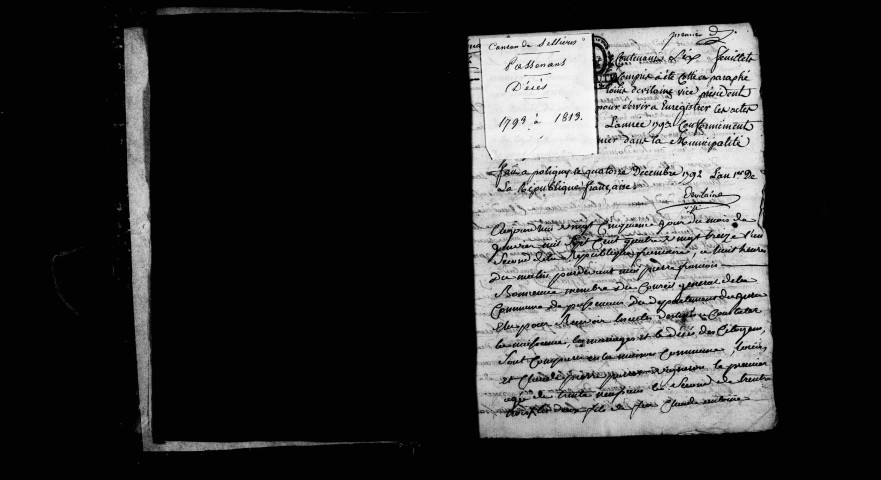 premier
Canton de Sellières
Passenans
Décès
1793 à 1813.
Contenant Six feuillets
Compris a été Cotté et paraphé
vice président
pour servir a Enregistrer les actes
L'année 1793 Conformément
dans la Municipalité
fait a poligny le quatorze Décembre 1792 L'an 1er De
La République française
Aujourd'huy vingt Cinquieme jour du mois de
janvier mil Sept Cent quatre vingt treize l'an
Second de la République francaise, a huit heures
du matin pardevant moi pierre francois
membre du Conseil general de la
Commune de passenans du departement du jura
Elu pour Recevoir les actes destinés a Constater
la naissance, les mariages et le décès des Citoyens,
Sont Comparu en la maison Commune,
et Claude pierre vigneron le premier
agé de trente neuf ans et le Second de trente
fils de feu Claude antoine